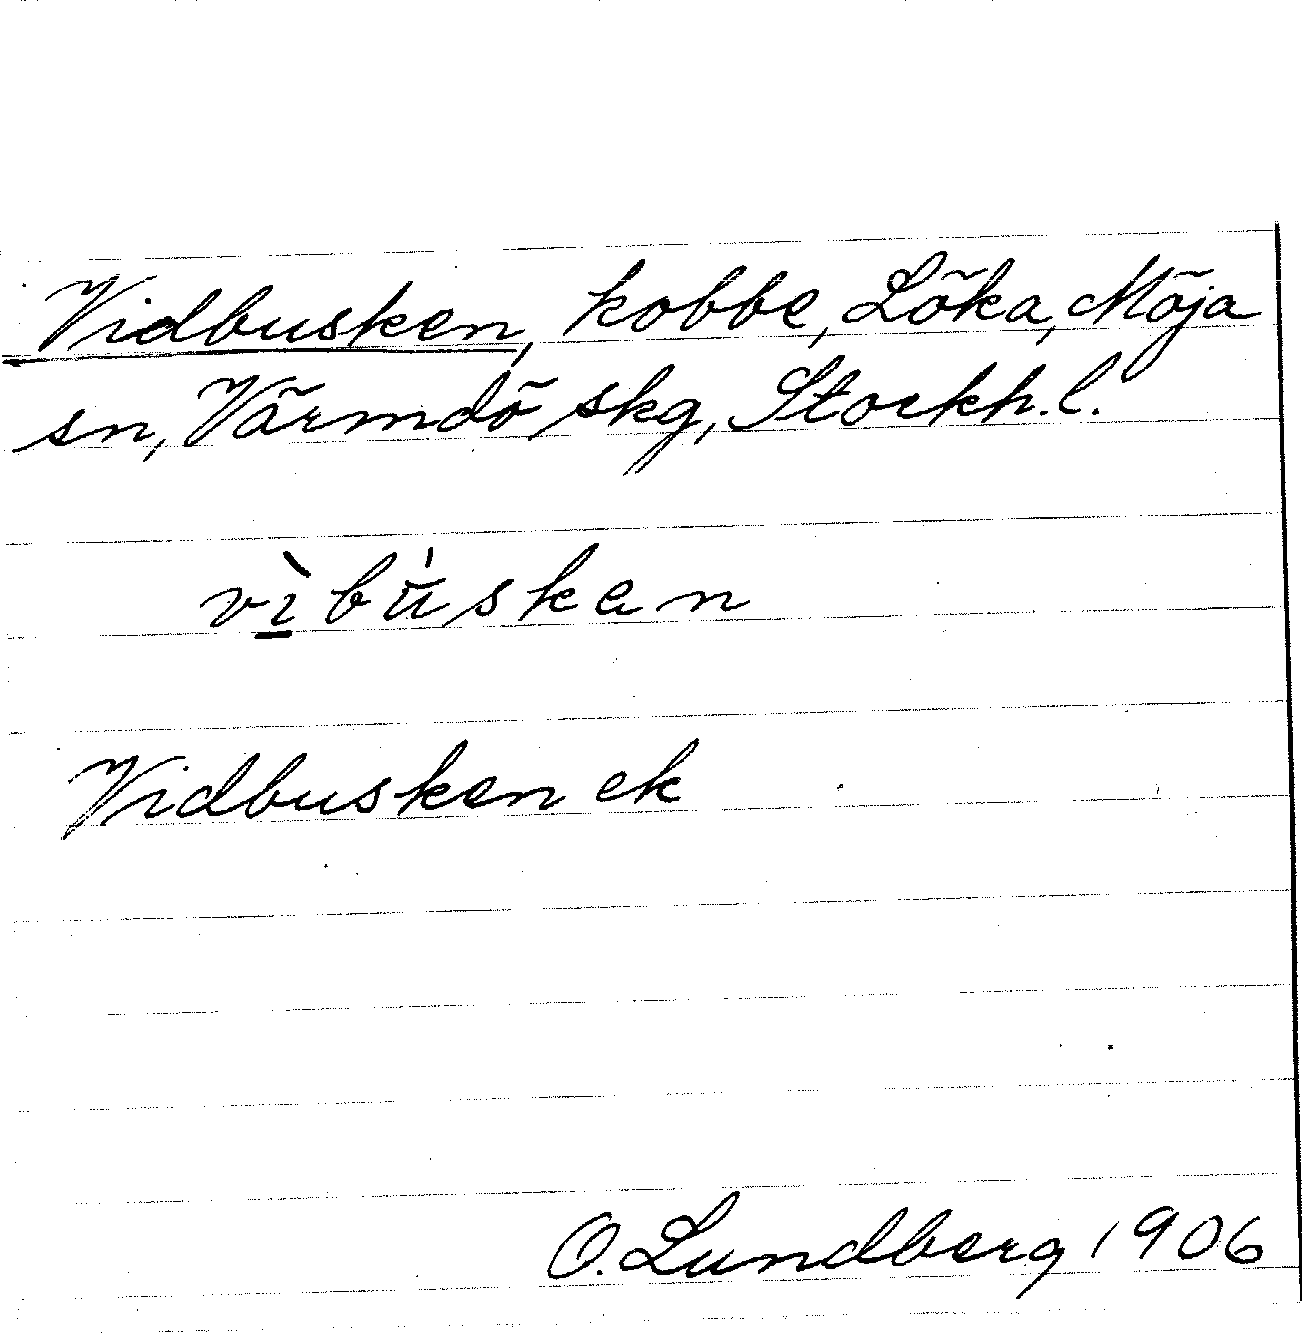 Vidbusken, kobbe, Löka, Möja
sn, Värmdö skg, Stockh. l.
vı̱̀bŭ́sken
Vidbusken ek
O. Lundberg 1906